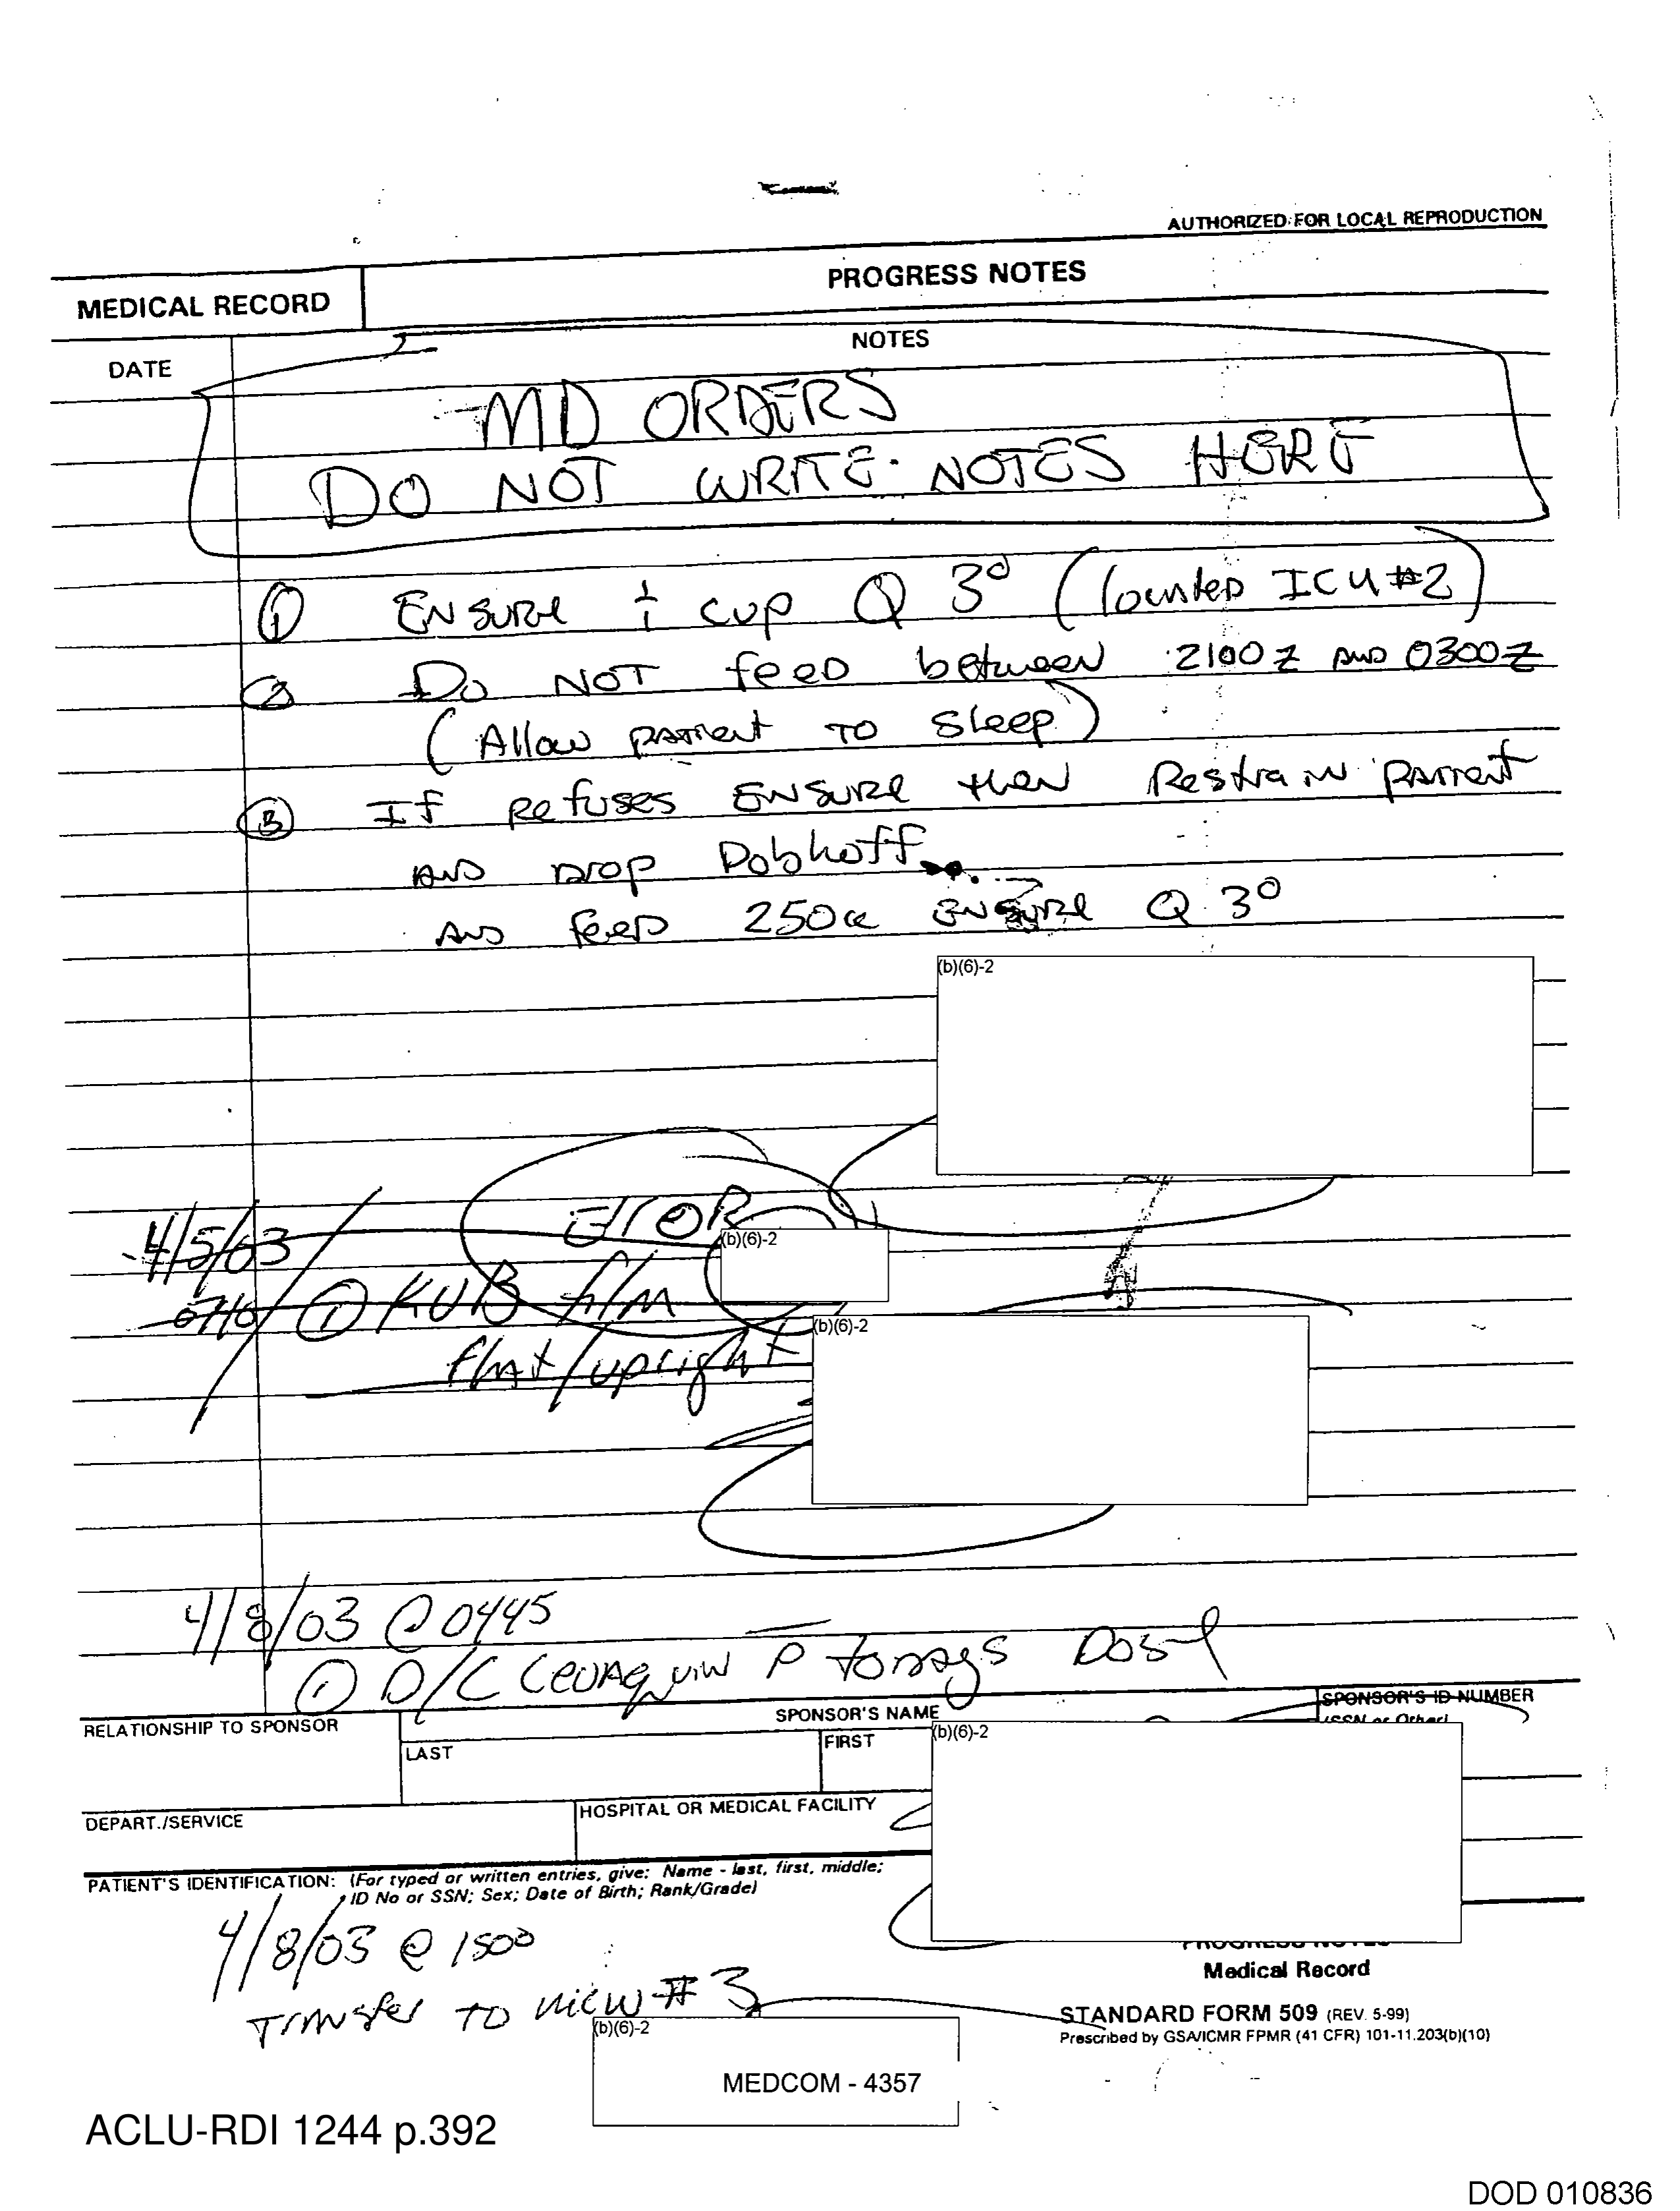 AUTHORIZED FOR LOCAL REPRODUCTION
MEDICAL RECORD
PROGRESS NOTES
DATE
NOTES
MD ORDERS
DO NOT WRITE NOTES HERE
① ENSURE 1 cup Q 3° (located ICU #2)
② Do NOT feed between 2100Z AND 0300Z
(Allow patient TO Sleep)
③ If refuses ENSURE then Restrain patient
AND DROP Dobhoff
AND feed 250cc ENSURE Q 3°
(b)(6)-2
4/5/03
error
(b)(6)-2
0710 ① KUB film
flat/upright
(b)(6)-2
4/8/03 @ 0445
① D/C Levaquin P todays Dose
RELATIONSHIP TO SPONSOR
SPONSOR'S NAME
SPONSOR'S ID NUMBER
(SSN or Other)
LAST
FIRST
(b)(6)-2
DEPART./SERVICE
HOSPITAL OR MEDICAL FACILITY
PATIENT'S IDENTIFICATION: (For typed or written entries, give: Name - last, first, middle;
ID No or SSN; Sex; Date of Birth; Rank/Grade)
4/8/03 @ 1500
Transfer TO #3
(b)(6)-2
PROGRESS NOTES
Medical Record
STANDARD FORM 509 (REV. 5-99)
Prescribed by GSA/ICMR FPMR (41 CFR) 101-11.203(b)(10)
MEDCOM - 4357
ACLU-RDI 1244 p.392
DOD 010836